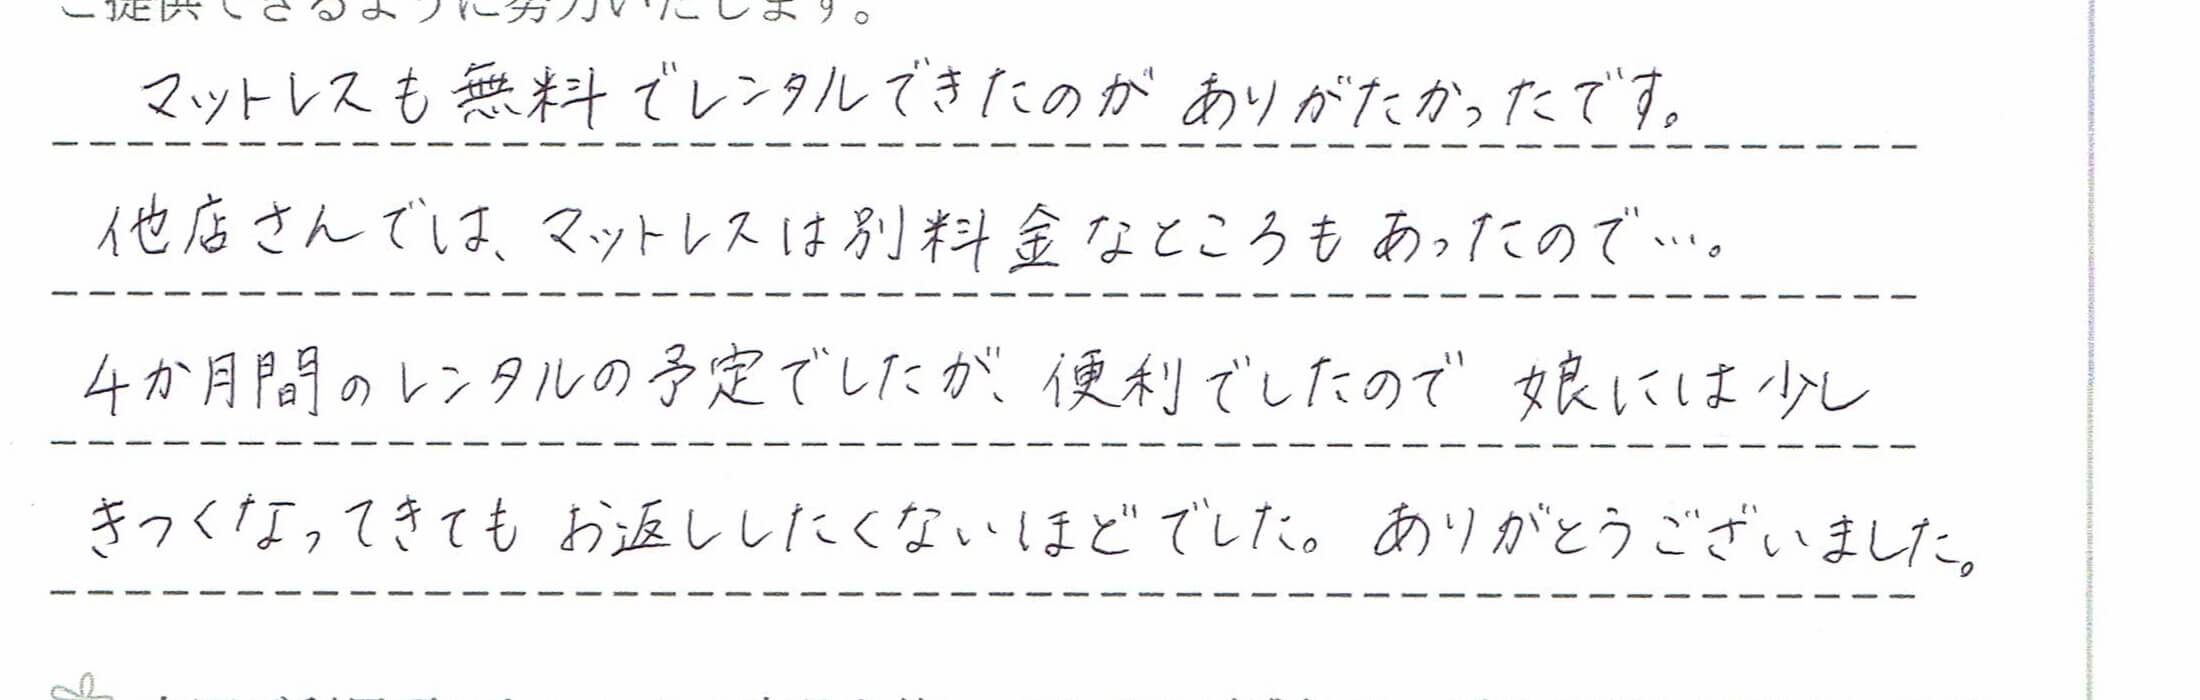 ご提供できるように努力いたします。
マットレスも無料でレンタルできたのが ありがたかったです。
他店さんでは、マットレスは別料金なところもあったので…。
4か月間のレンタルの予定でしたが、便利でしたので 娘には少し
きつくなってきても お返ししたくないほどでした。ありがとうございました。